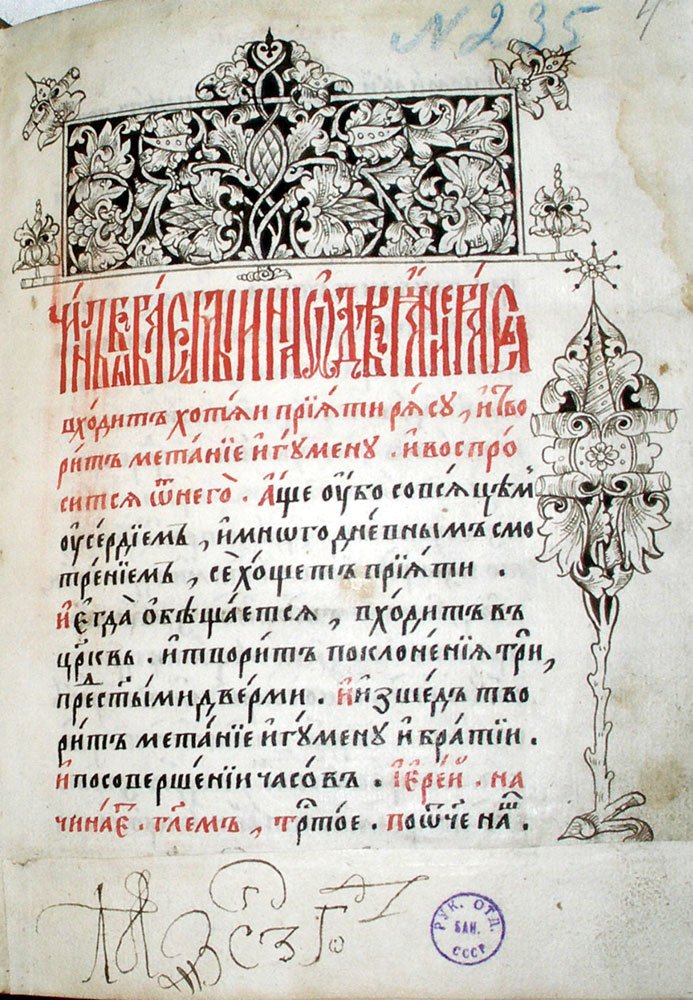 № 235
4
входитъ хотѧи прїѧти рѧсу, и тво
ритъ метанїе игумену . и воспро
сится ѿ него . Аще оубо совсѧцѣм
оусердїемъ, и многодневнымъ смо
тренїемъ, се хощетъ прїѧти .
И егда обѣщаетсѧ, входитъ въ
црковь . и творитъ поклоненїѧ три,
пред ст҃ыми дверми . И изшедъ тво
ритъ метанїе игумену и братїи .
И по совершенїи часовъ . Їерей . на
чинае . гл҃емъ, трт҃ое . по ѿче наш .
РУК. ОТД.
БАН.
СССР